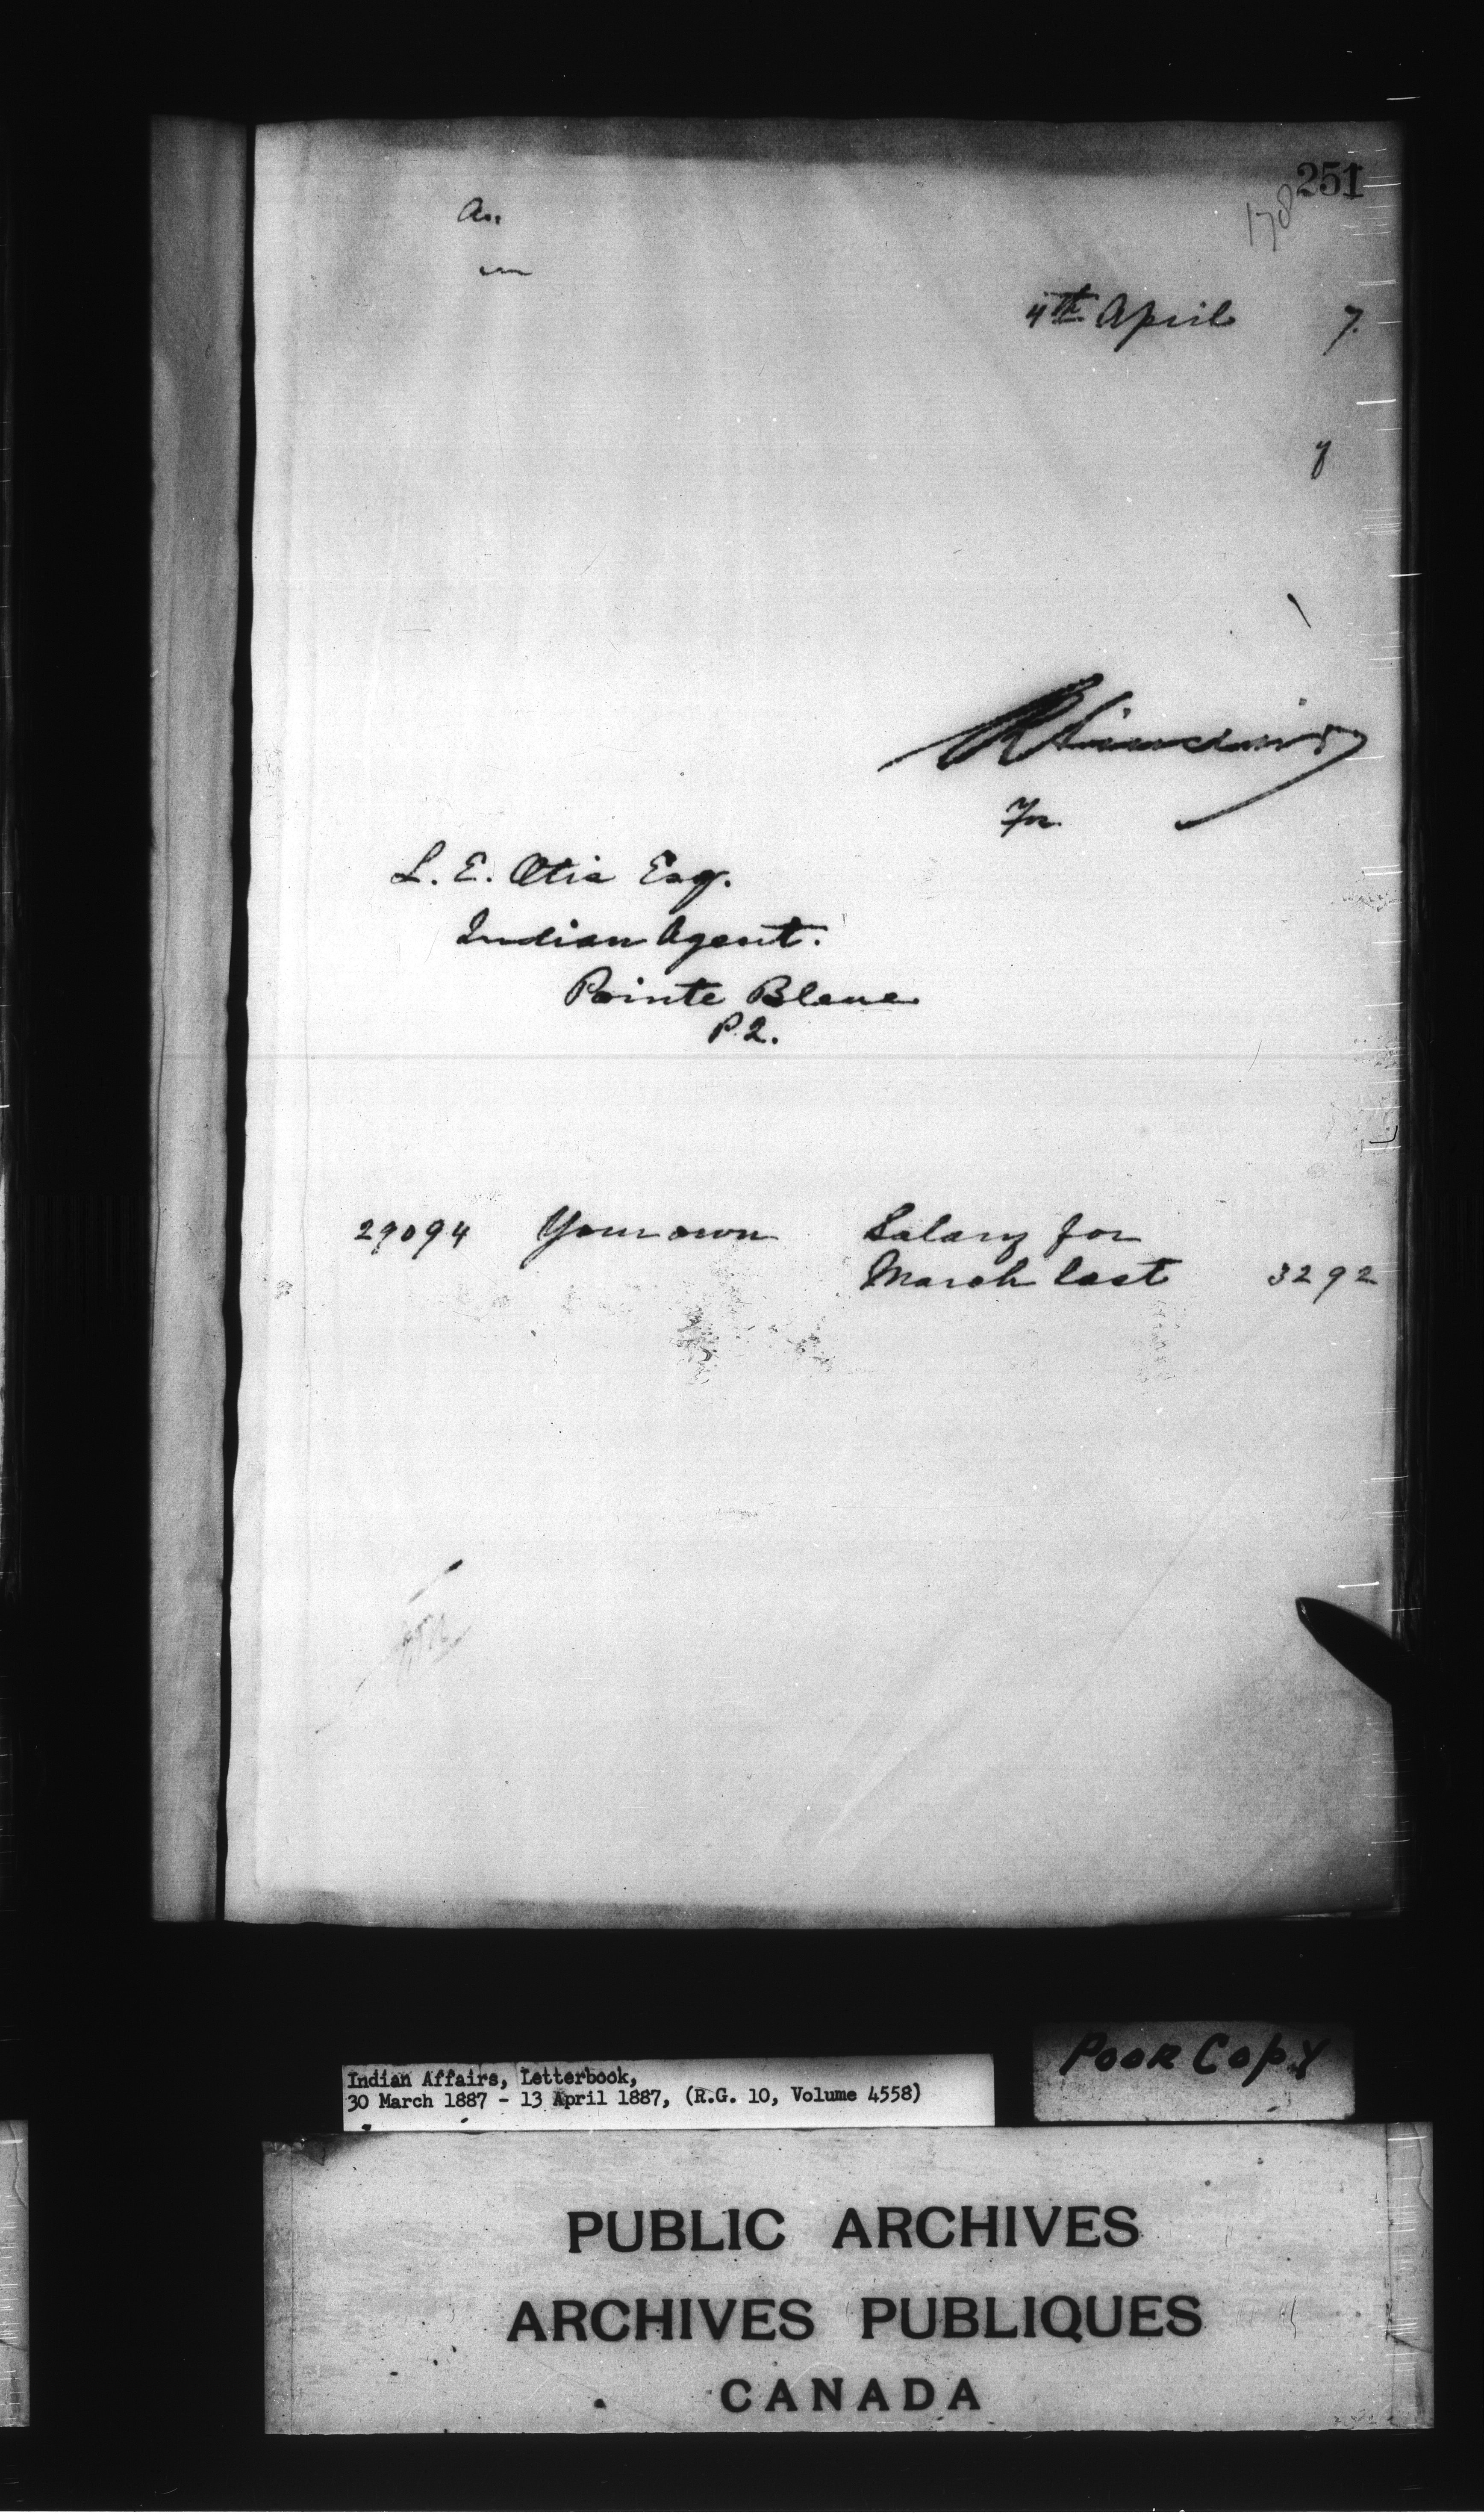 251
178
a..
4th April 7.
y
For
L. E. Otis Esq.
Indian Agent.
Pointe Bleue
P.Q.
29094 Your own Salary for
March last 3292
Poor Copy
Indian Affairs, Letterbook,
30 March 1887 - 13 April 1887, (R.G. 10, Volume 4558)
PUBLIC ARCHIVES
ARCHIVES PUBLIQUES
CANADA